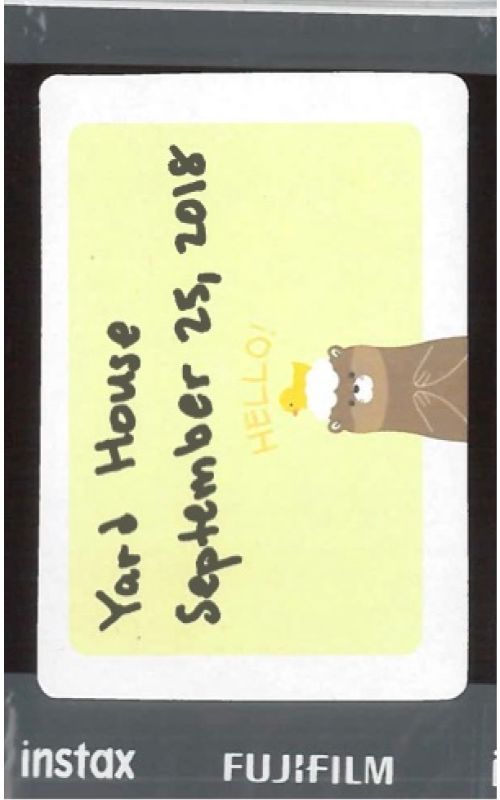 Yard House
September 25, 2018
HELLO!
instax
FUJIFILM